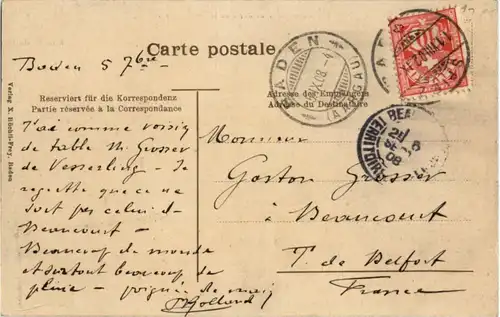 Carte postale
Baden 5 7bre
BADEN
(AARGAU)
Verlag X. Höchli-Frey, Baden
Reserviert für die Korrespondenz
Partie réservée à la Correspondance
Adresse des Empfängers
Adresse du Destinataire
J'ai comme voisin
de table Mr Grosser
de Vesserling - Je
regrette que ce ne
soit pas celui de
Beaucourt -
Beaucoup de monde
et surtout beaucoup de
pluie - poignée de main
Monsieur
Gaston Grosser
à Beaucourt
T. de Belfort
France